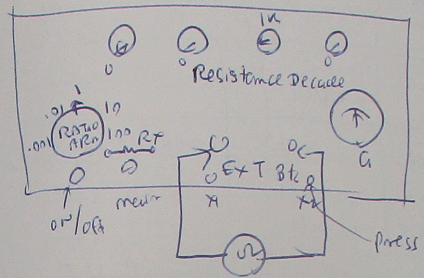 1K
0 0 0
Resistance Decade
.001 .01 1 10 100
RATIO ARM
RX
G
EXT
ON/OFF
press